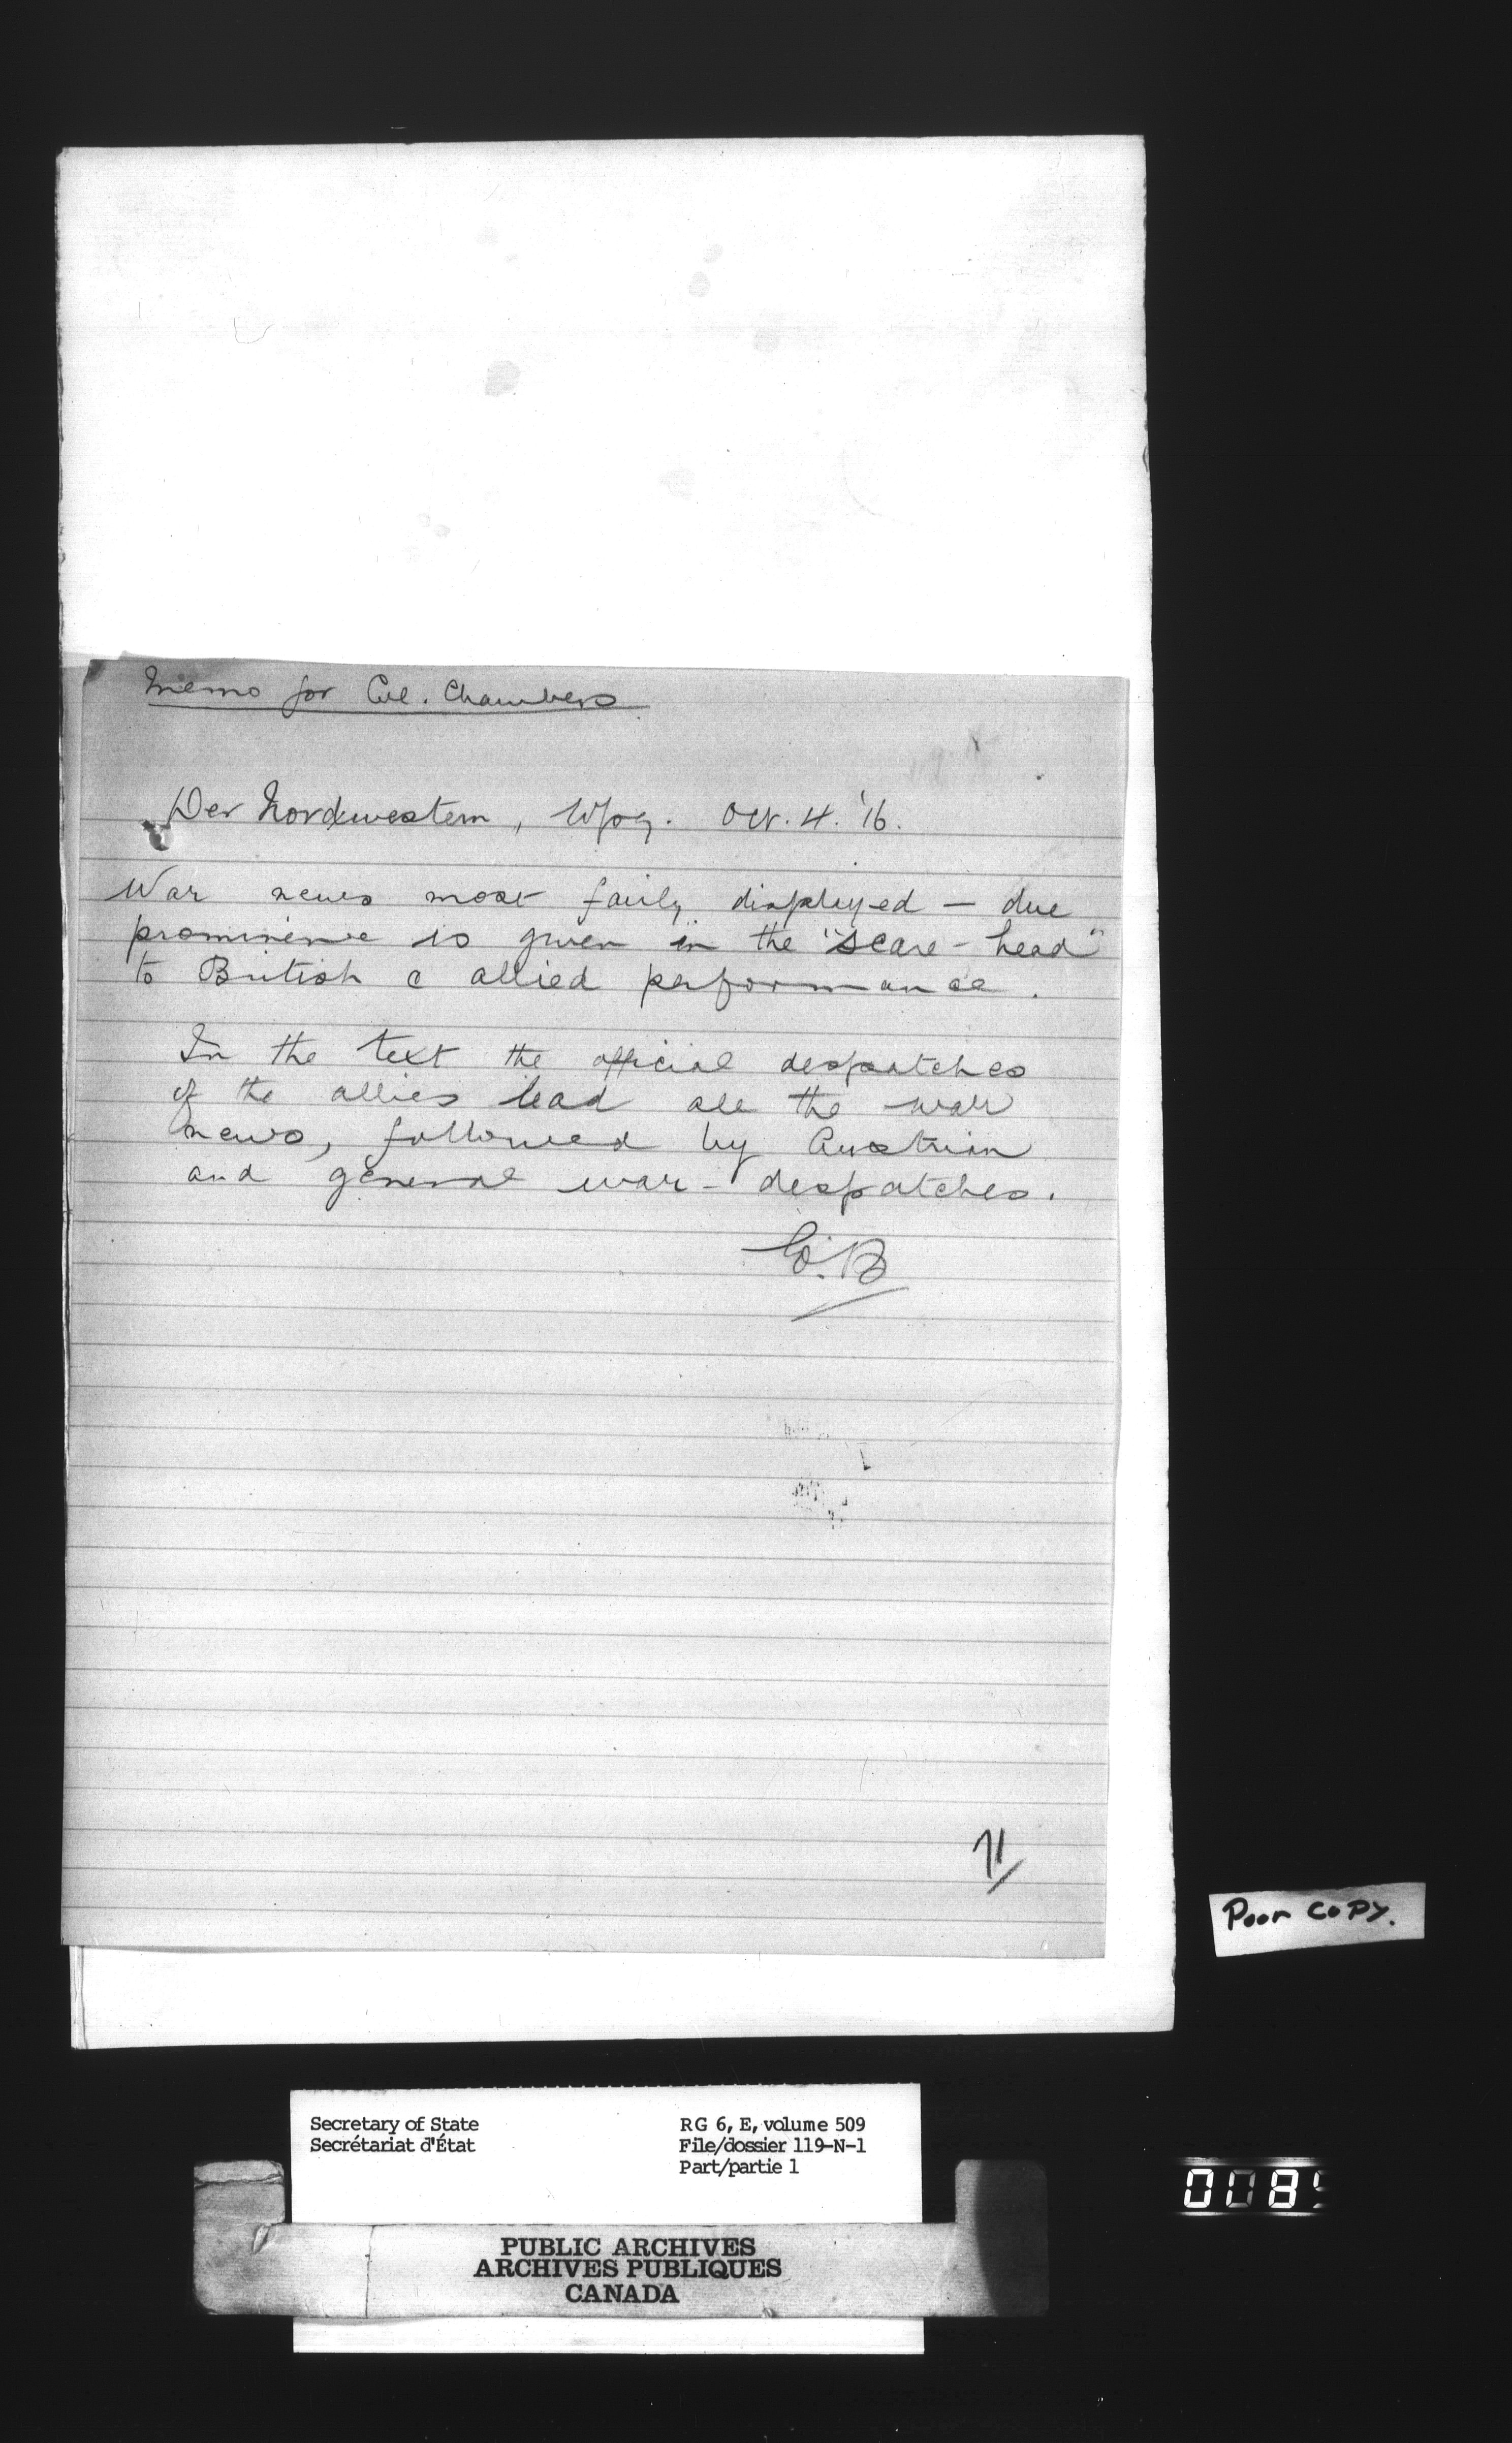 Memo for Col. Chambers
Der Nordwestern, Wpg. Oct. 4. '16.
War news most fairly displayed — due
prominence is given in the "scare-head"
to British & allied performance.
In the text the official despatches
of the allies lead all the war
news, followed by Austrian
and general war-despatches.
71
Poor Copy.
Secretary of State
Secrétariat d'État
RG 6, E, volume 509
File/dossier 119-N-1
Part/partie 1
PUBLIC ARCHIVES
ARCHIVES PUBLIQUES
CANADA